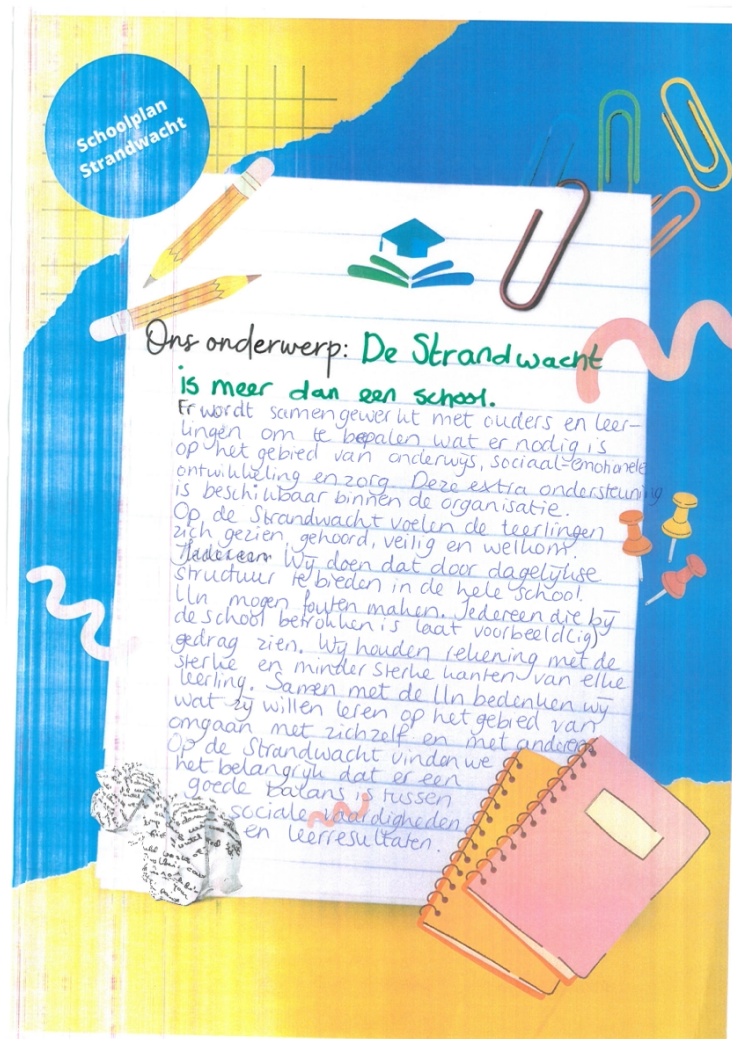 Schoolplan
Strandwacht
Ons onderwerp: De Strandwacht
is meer dan een school.
Er wordt samengewerkt met ouders en leer-
lingen om te bepalen wat er nodig is
op het gebied van onderwijs, sociaal-emotionele
ontwikkeling en zorg. Deze extra ondersteuning
is beschikbaar binnen de organisatie.
Op de Strandwacht voelen de leerlingen
zich gezien, gehoord, veilig en welkom.
Wij doen dat door dagelijkse
structuur te bieden in de hele school.
lln mogen fouten maken. Iedereen die bij
de school betrokken is laat voorbeeld(ig)
gedrag zien. Wij houden rekening met de
sterke en minder sterke kanten van elke
leerling. Samen met de lln bedenken wij
wat zij willen leren op het gebied van
omgaan met zichzelf en met anderen.
Op de Strandwacht vinden we
het belangrijk dat er een
goede balans is tussen
sociale vaardigheden
en leerresultaten.